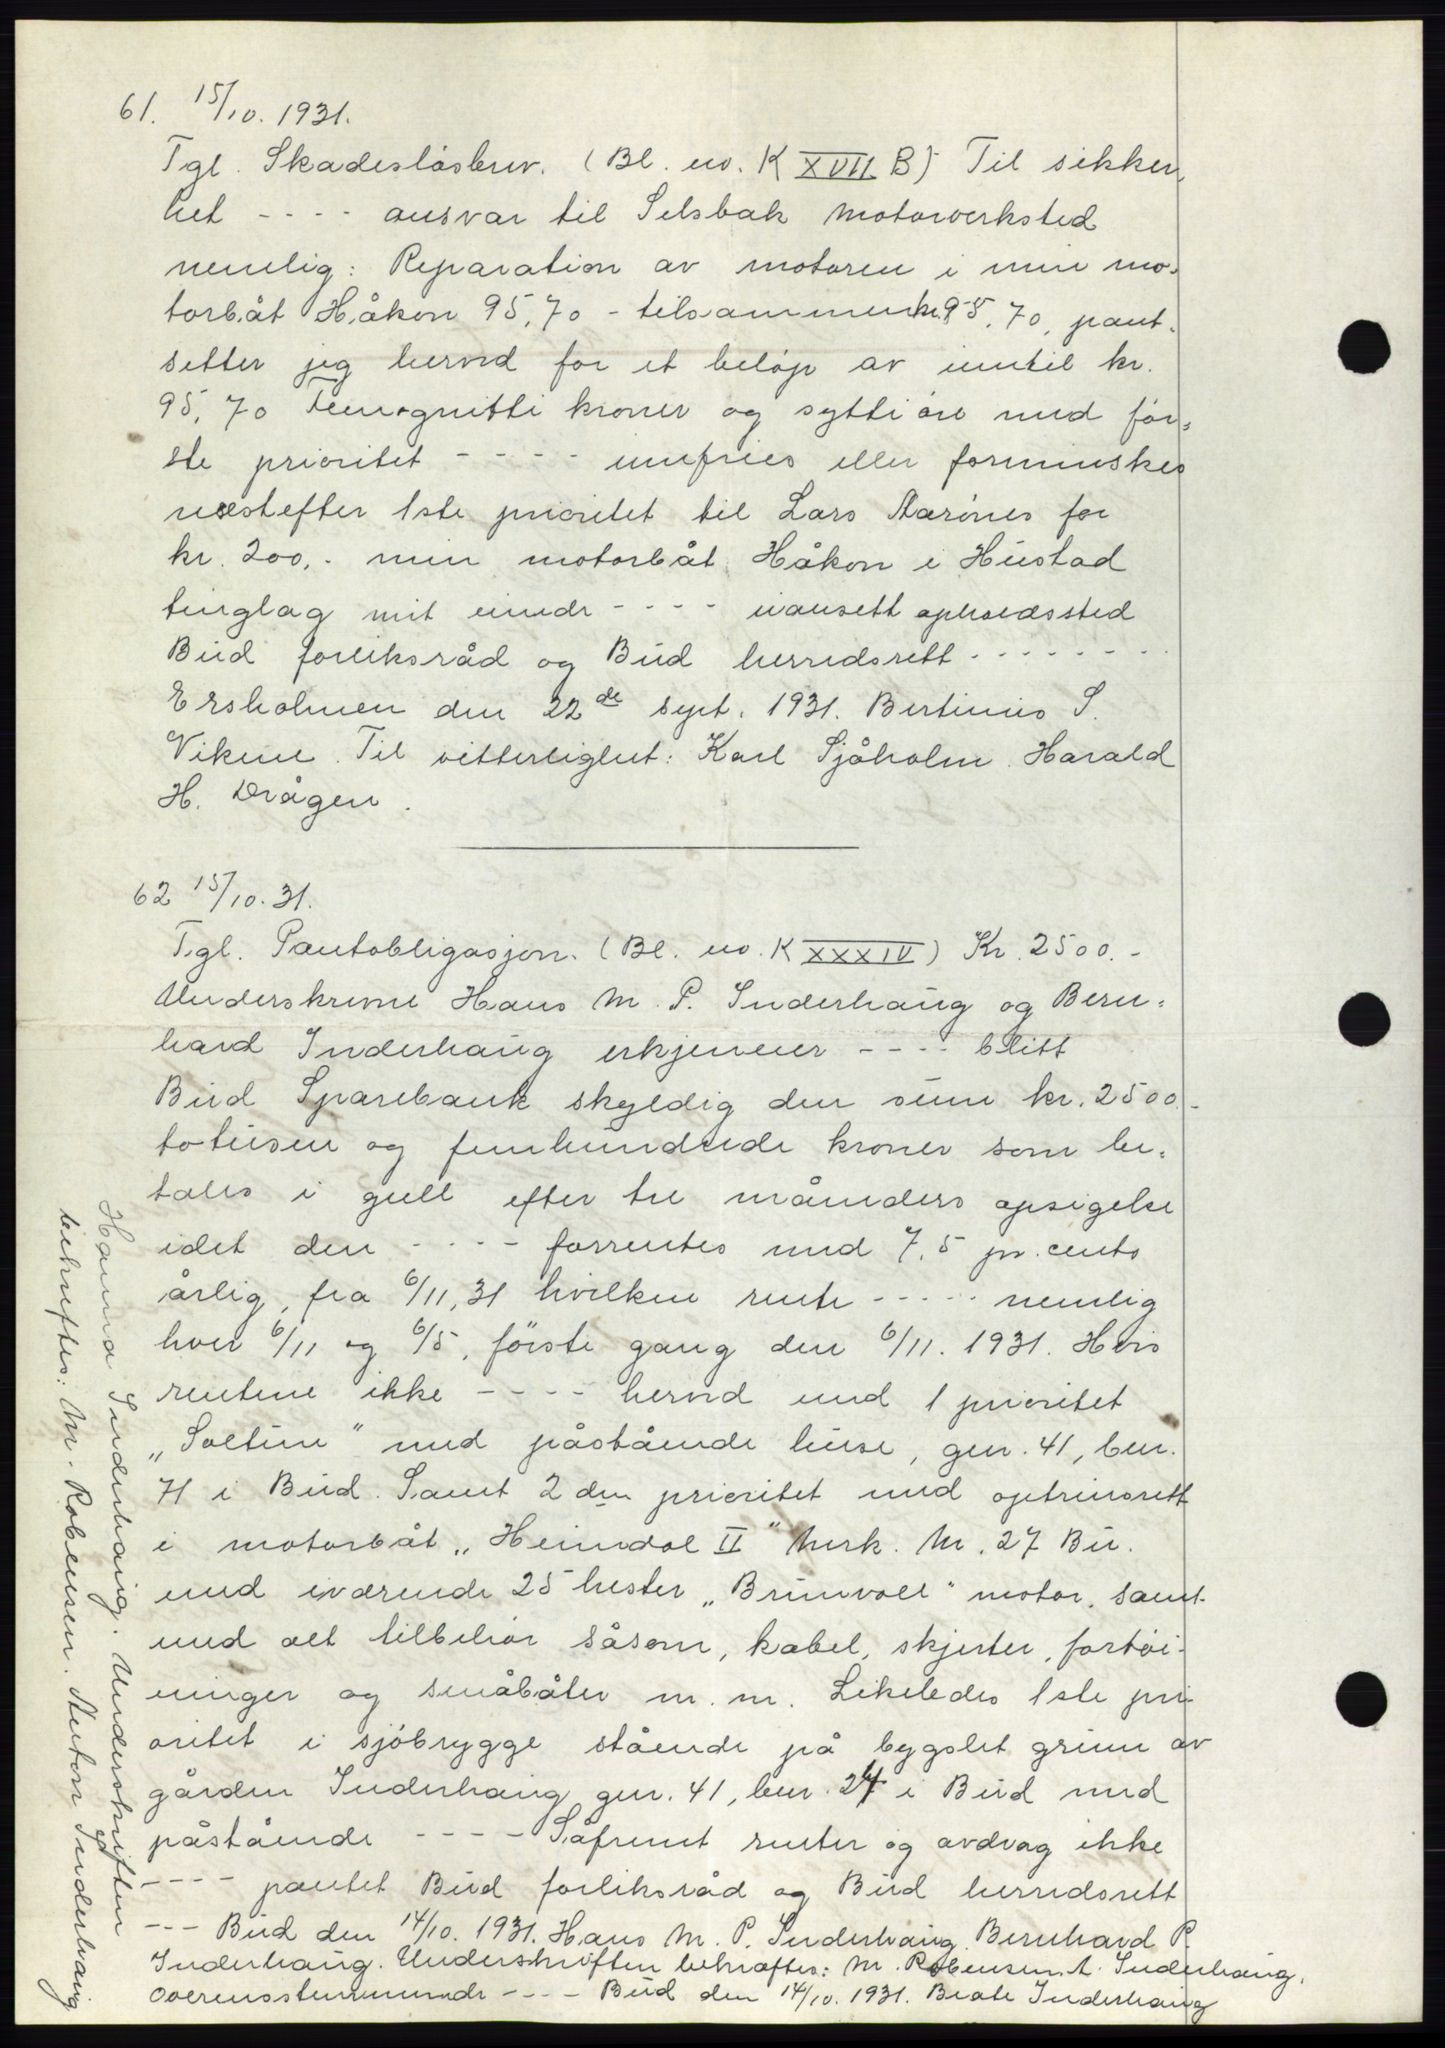 61. 15/10. 1931.
Tgl. Skadesløsbrev. (Bl. no. K XVII B) Til sikker-
het ---- ansvar til Selsbak Motorverksted
nemlig: Reparation av motoren i min mo-
torbåt Håkon 95,70 - tilsammen kr. 95,70, pant-
setter jeg herved for et beløp av inntil kr.
95,70 Femognitti kroner og sytti øre med før-
ste prioritet ---- innfries eller forminskes
næstefter 1ste prioritet til Lars Aarønes for
kr. 200,- min motorbåt Håkon i Hustad
tinglag mit eiende ---- uansett opholdssted
Bud forliksråd og Bud herredsrett --------
Ersholmen den 22de sept. 1931. Bertinus S.
Vikene. Til vitterlighet: Karl Sjåholm. Harald
H. Drågen.
62 15/10.31.
Tgl. Pantobligasjon. (Bl. no. K XXXIV) Kr. 2500.-
Underskrevne Hans M. P. Inderhaug og Bern-
hard Inderhaug erkjenner ---- blitt
Bud Sparebank skyldig den sum kr. 2500.-
totusen og femhundrede kroner som be-
tales i gull efter tre måneders opsigelse
idet den ---- forrentes med 7,5 pr. cents
årlig, fra 6/11,31 hvilken rente ----- nemlig
hver 6/11 og 6/5, første gang den 6/11. 1931. Hvis
rentene ikke ---- herved med 1 prioritet
„Soltun" med påstående huse, gnr. 41, bnr.
71 i Bud. Samt 2den prioritet med optrinsrett
i motorbåt „Heimdal II" Merk. M. 27 Bu.
med iværende 25 hester „Brunvoll" motor, samt
med alt tilbehør såsom, kabel, skjerter, fortøi-
ninger og småbåter m. m. Likeledes 1ste pri-
oritet i sjøbrygge stående på bygslet grunn av
gården Inderhaug gnr. 41, bnr. 24 i Bud med
påstående ---- Såfremt renter og avdrag ikke
---- pantet Bud forliksråd og Bud herredsrett
--- Bud den 14/10. 1931. Hans M. P. Inderhaug. Bernhard P.
Inderhaug. Underskriften bekræftes: M. Robensen. A. Inderhaug.
Overensstemmende ---- Bud den 14/10. 1931. Beate Inderhaug
Hanna Inderhaug. Underskriften
bekreftes: M. Robensen. Anton Inderhaug